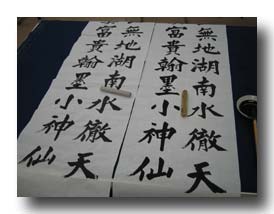 無地湖南水徹天
富貴翰墨小神仙
無地湖南水徹天
富貴翰墨小神仙